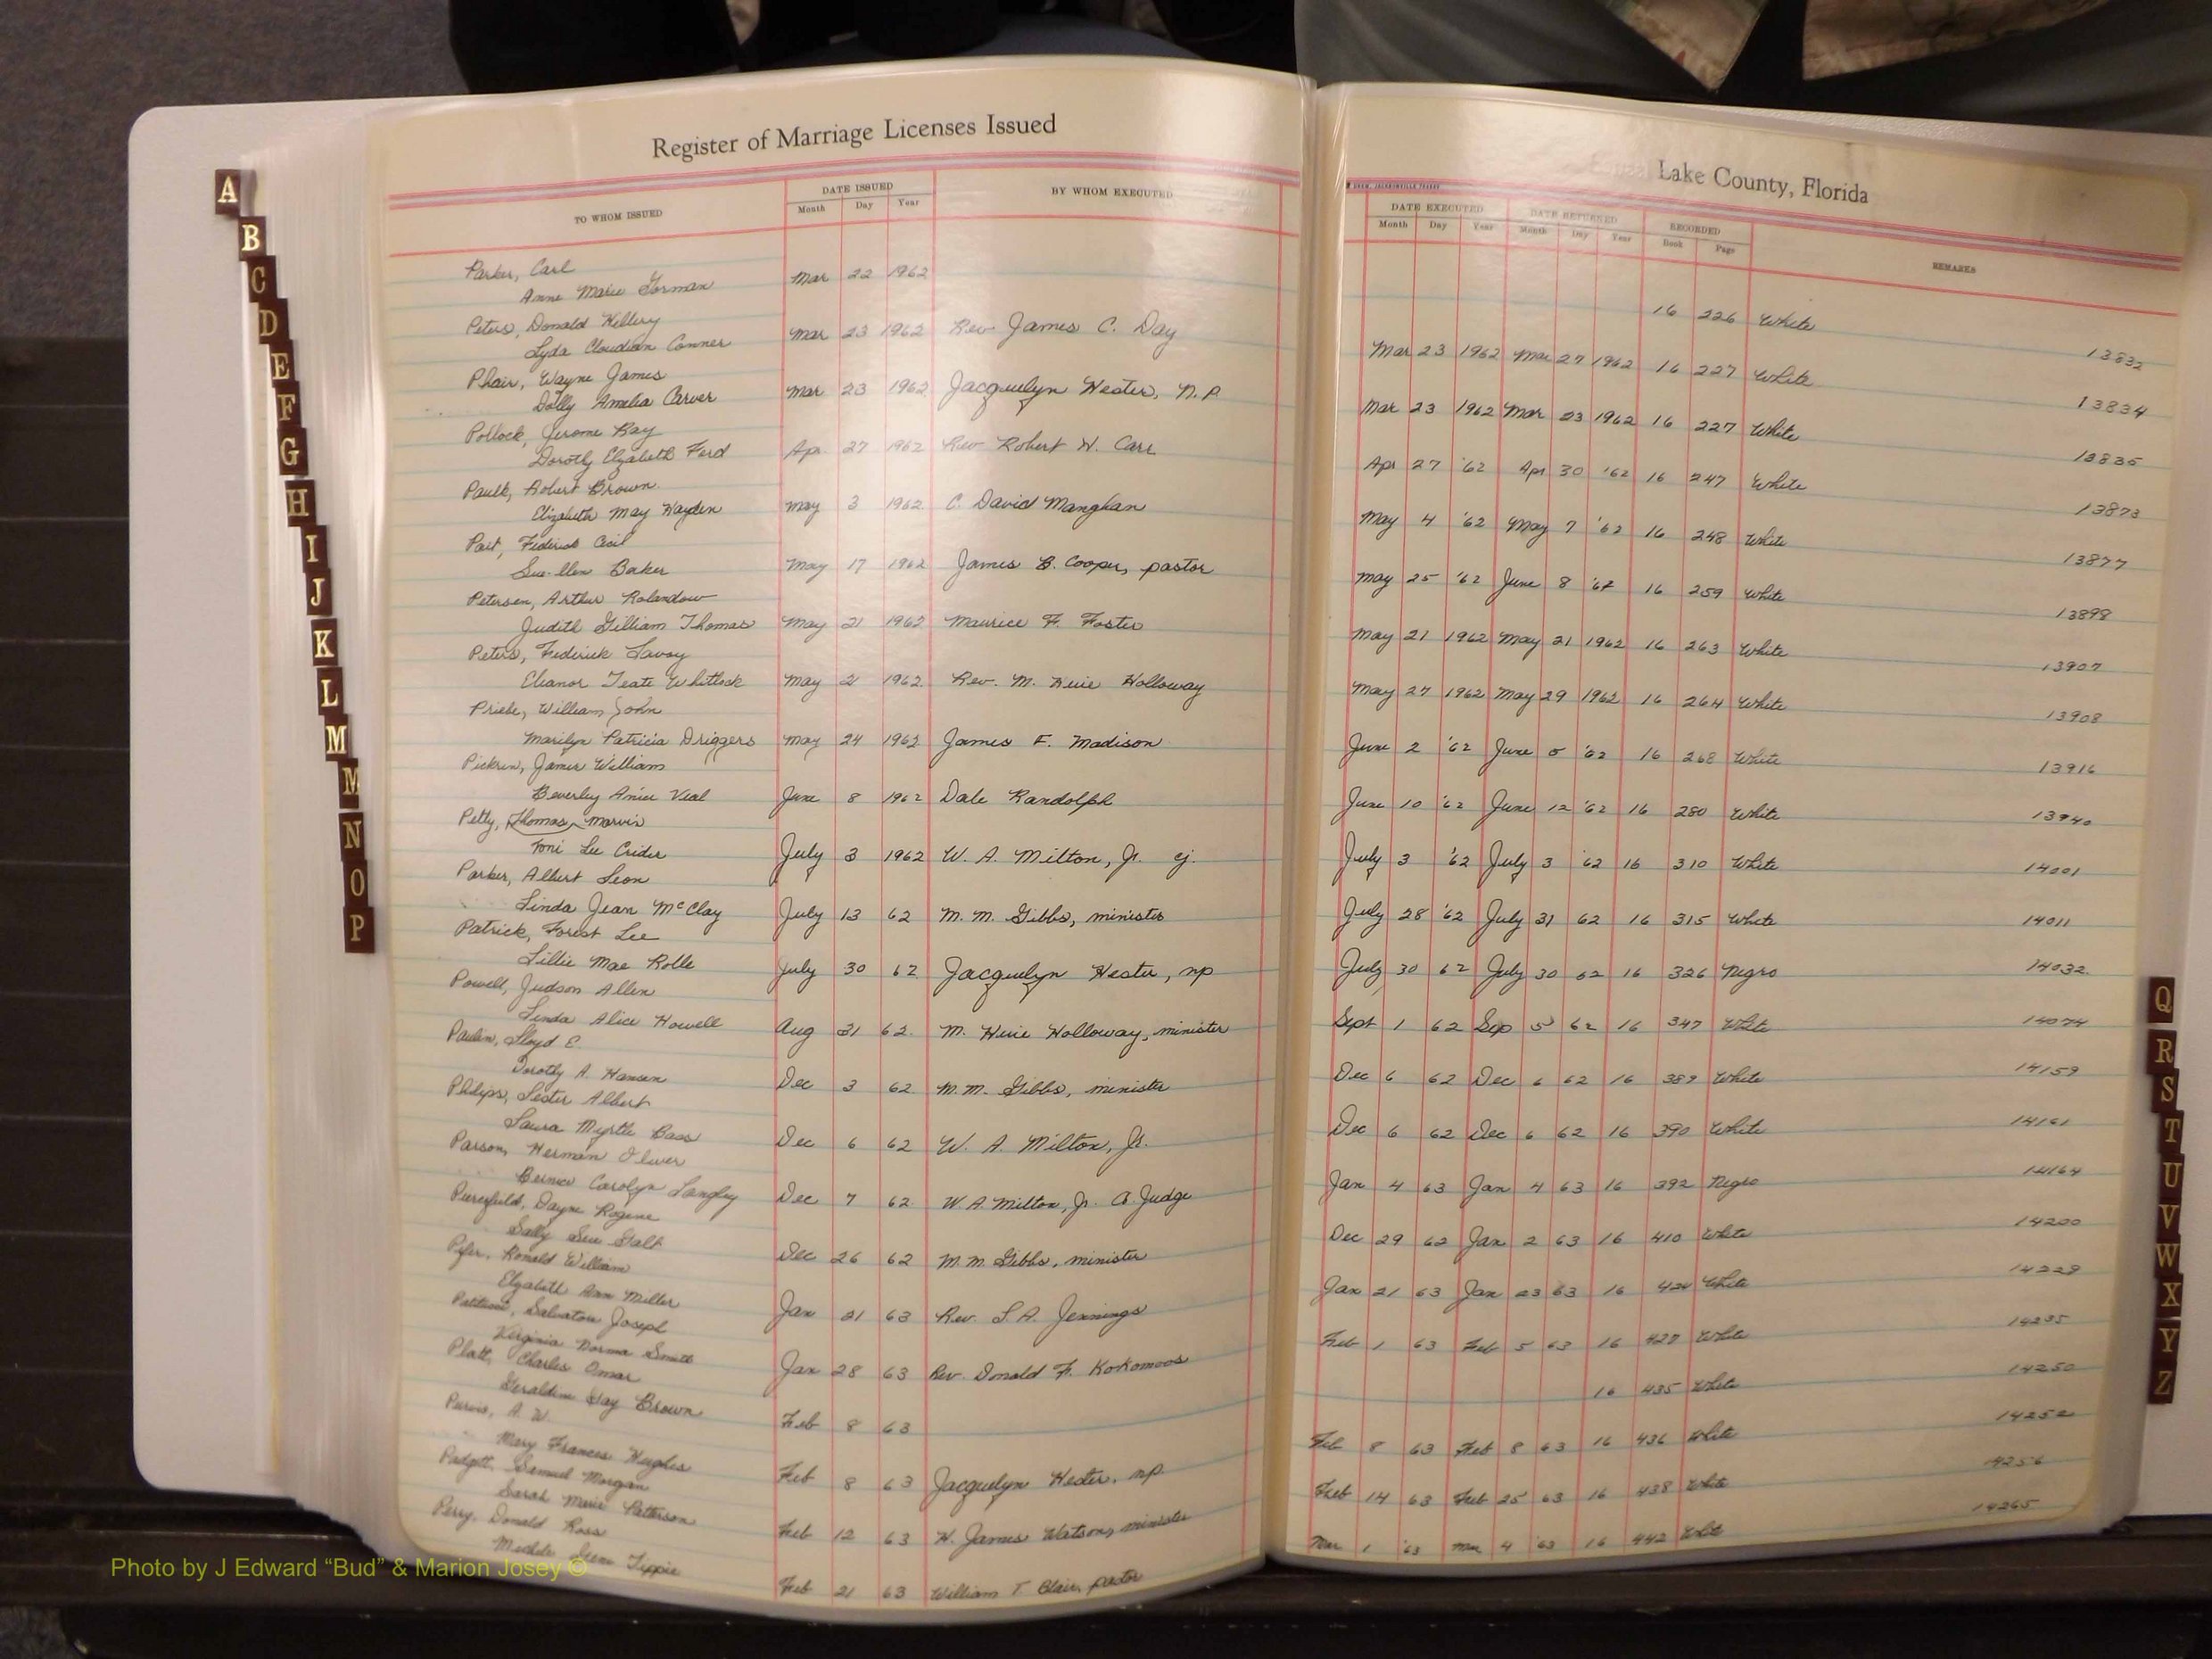 Register of Marriage Licenses Issued
TO WHOM ISSUED DATE ISSUED BY WHOM EXECUTED
Month Day Year
Parker, Carl
Anne Marie Gorman Mar 22 1962
Peters, Donald
Lyda Conner Mar 23 1962 Rev James C. Day
Phair, Wayne James
Dolly Amelia Carver Mar 23 1962 Jacquelyn Hester, N.P.
Pollock, Jerome Ray
Dorothy Elizabeth Ford Apr. 27 1962 Rev Robert W. Carr
Paulk, Robert Brown
Elizabeth May Hayden May 3 1962 C. David Manghan
Cecil
Baker May 17 1962 James B. Cooper, pastor
Petersen, Arthur
Judith Gilliam Thomas May 21 1962 Maurice F. Foster
Peters, Federick
Eleanor Teate Whitlock May 21 1962 Rev. M. Holloway
Priebe, William John
Marilyn Patricia Driggers May 24 1962 James F. Madison
James William
Beverley Veal June 8 1962 Dale Randolph
Petty, Thomas Marvin
Toni Lee Crider July 3 1962 W. A. Milton, Jr. cj.
Parker, Albert Leon
Linda Jean McClay July 13 62 M. M. Gibbs, minister
Patrick, Forest Lee
Lillie Mae Rolle July 30 62 Jacquelyn Hester, np
Powell, Judson Allen
Linda Alice Howell Aug 31 62 M. Holloway, minister
Lloyd E.
Dorothy A. Hansen Dec 3 62 M. M. Gibbs, minister
Philips, Lester Albert
Laura Myrtle Bass Dec 6 62 W. A. Milton, Jr.
Parson, Herman Oliver
Bernice Carolyn Langley Dec 7 62 W. A. Milton, Jr. Judge
Dayne Rogene
Sally Sue Galt Dec 26 62 M. M. Gibbs, minister
Ronald William
Elizabeth Ann Miller Jan 21 63 Rev. Jennings
Salvatore Joseph
Virginia Norma Smith Jan 28 63 Rev. Donald F.
Platt, Charles Omar
Geraldine Gay Brown Feb 8 63
Purvis, A. W.
Mary Frances Hughes Feb 8 63 Jacquelyn Hester, np
Padgett, Samuel Morgan
Sarah Marie Patterson Feb 12 63 H. James Watson, minister
Perry, Donald Ross
Tippie Feb 21 63 William T. Blair, pastor
Lake County, Florida
DATE EXECUTED DATE RETURNED RECORDED REMARKS
Month Day Year Month Day Year Book Page
16 226 White 13832
Mar 23 1962 Mar 27 1962 16 227 White 13834
Mar 23 1962 Mar 23 1962 16 227 White 13835
Apr 27 '62 Apr 30 '62 16 247 White 13873
May 4 '62 May 7 '62 16 248 White 13877
May 25 '62 June 8 '62 16 259 White 13898
May 21 1962 May 21 1962 16 263 White 13907
May 27 1962 May 29 1962 16 264 White 13908
June 2 '62 June 5 '62 16 268 White 13916
June 10 '62 June 12 '62 16 280 White 13940
July 3 '62 July 3 '62 16 310 White 14001
July 28 '62 July 31 62 16 315 White 14011
July 30 62 July 30 62 16 326 Negro 14032
Sept 1 62 Sep 5 62 16 347 White 14074
Dec 6 62 Dec 6 62 16 389 White 14159
Dec 6 62 Dec 6 62 16 390 White 14161
Jan 4 63 Jan 4 63 16 392 Negro 14164
Dec 29 62 Jan 2 63 16 410 White 14200
Jan 21 63 Jan 23 63 16 424 White 14229
Feb 1 63 Feb 5 63 16 427 White 14235
16 435 White 14250
Feb 8 63 Feb 8 63 16 436 White 14252
Feb 14 63 Feb 25 63 16 438 White 14256
Mar 1 '63 Mar 4 '63 16 442 White 14265
A
B
C
D
E
F
G
H
I
J
K
L
M
M
N
O
P
Q
R
S
T
U
V
W
X
Y
Z
Photo by J Edward “Bud” & Marion Josey ©